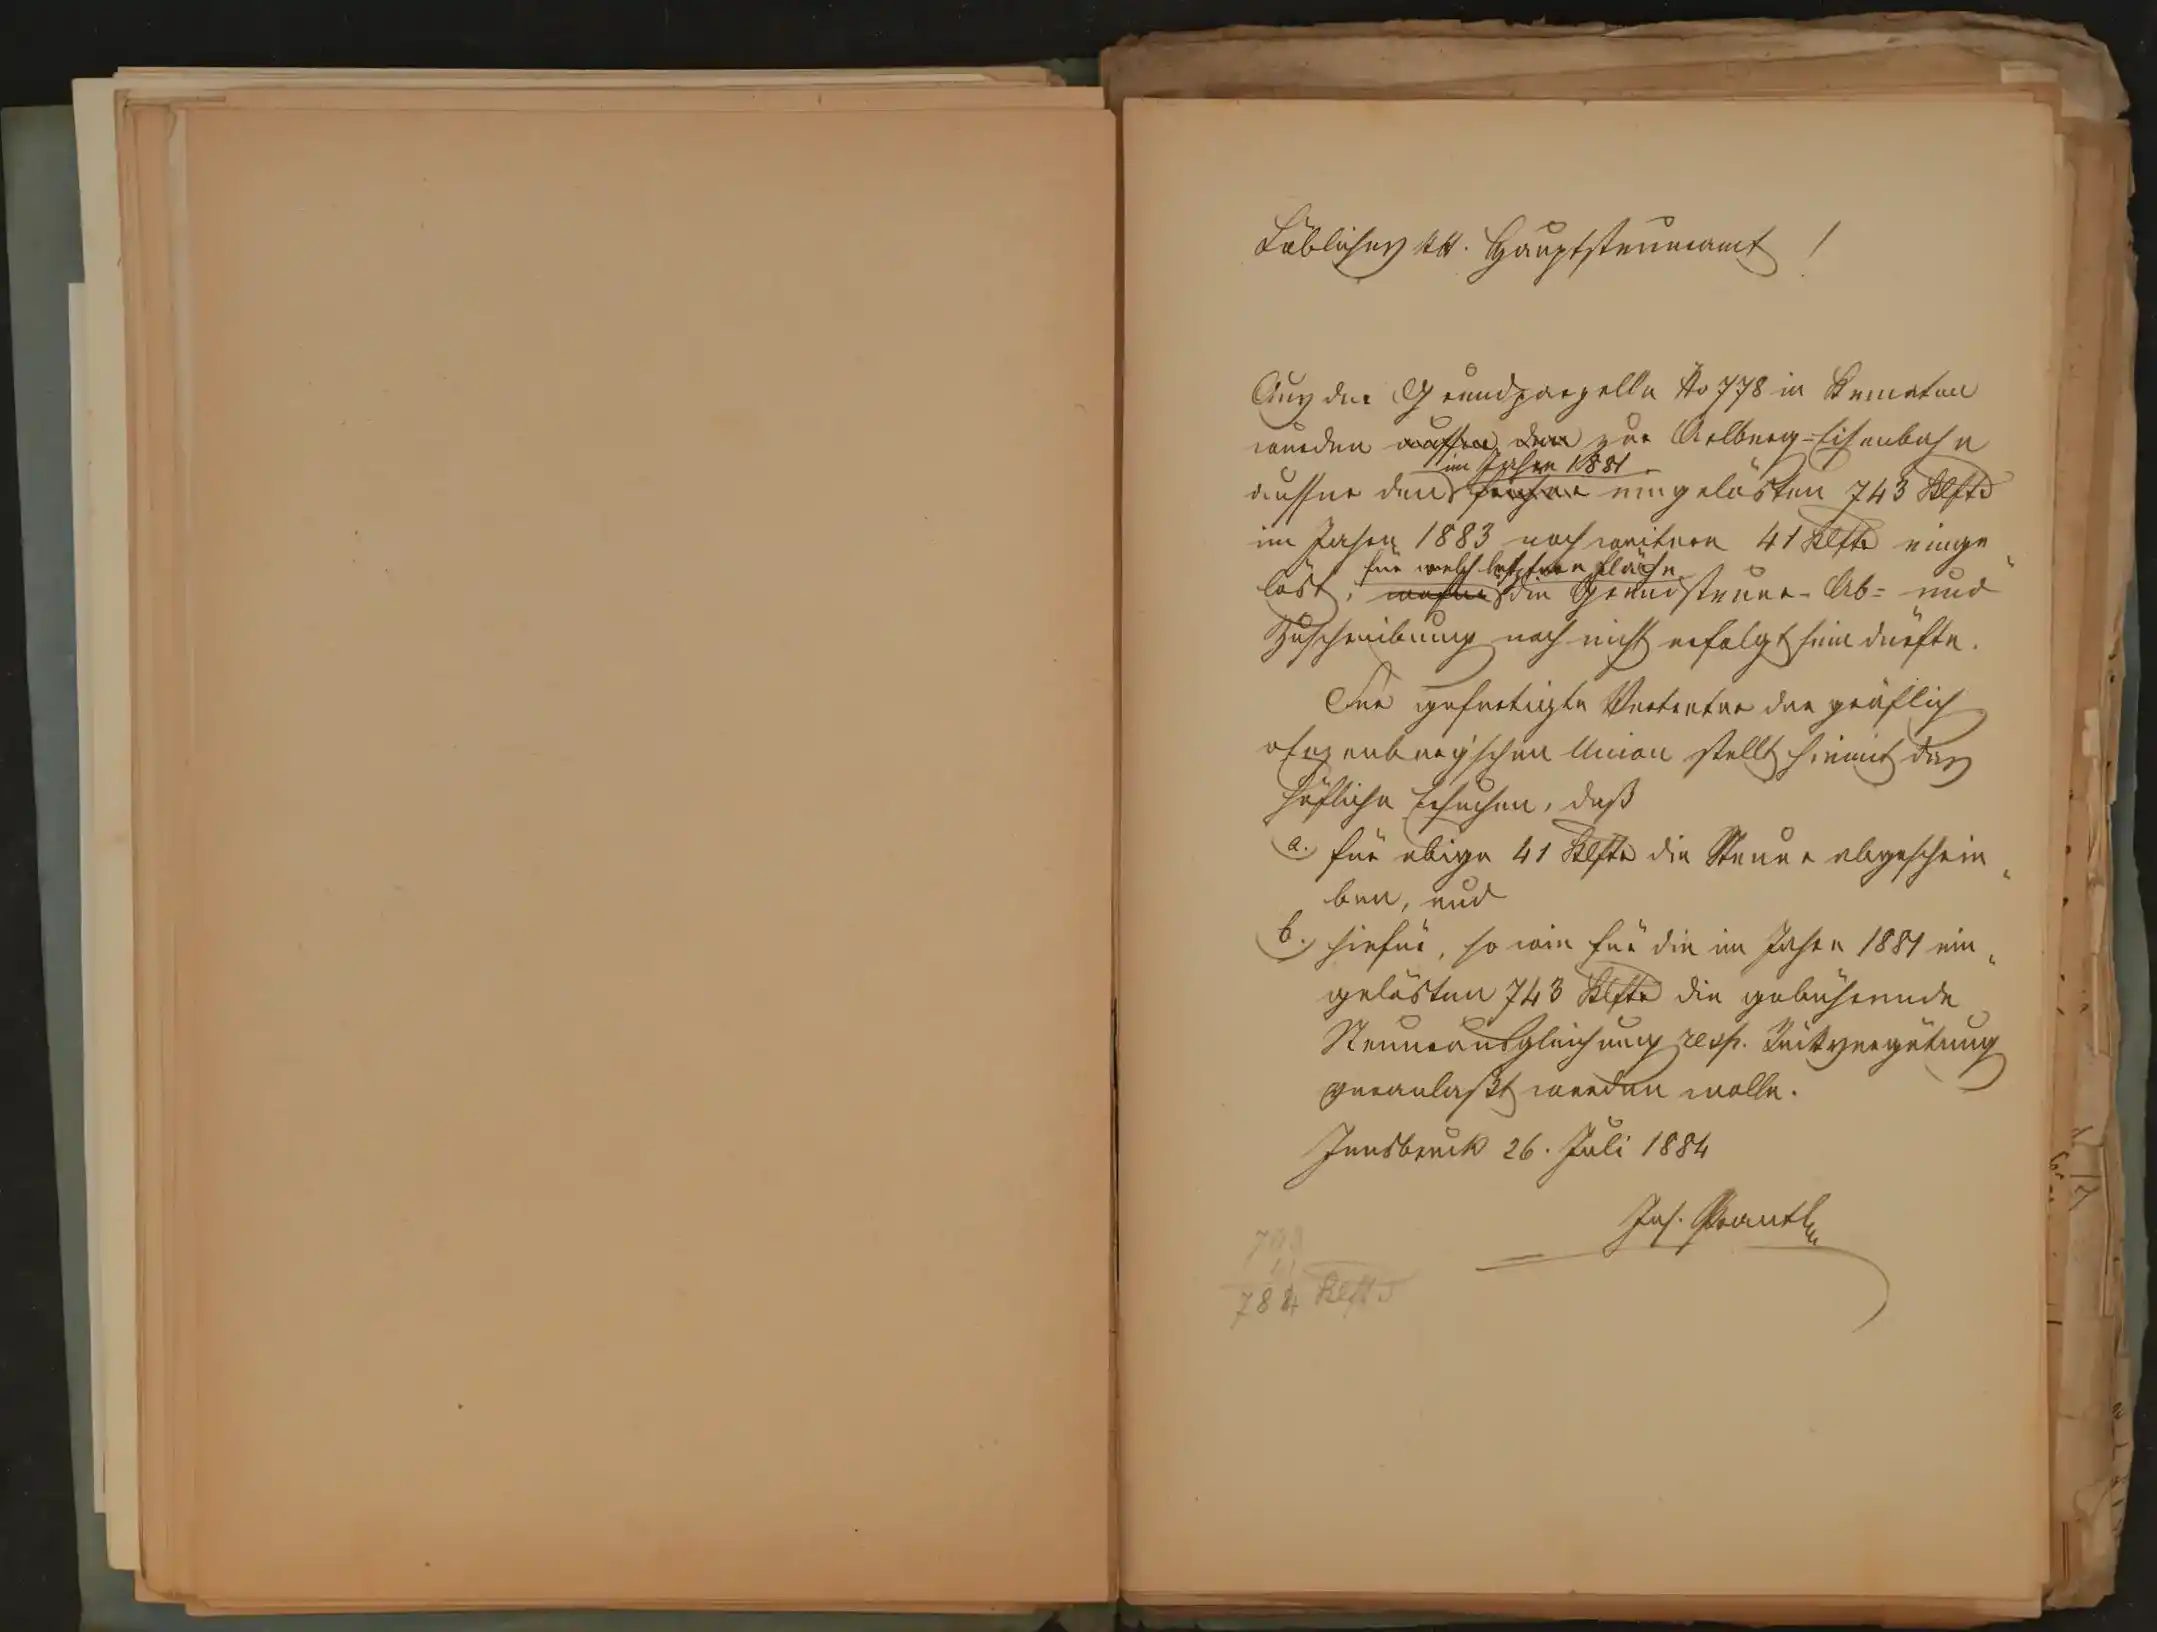 Löbliches kk. Hauptsteueramt!
Aus der Grundparzelle No 778 in Kematen
wurden ausser den zur Arlberg-Eisenbahn
im Jahre 1881
ausser den früher eingelösten 743 Klftr
im Jahre 1883 noch weitere 41 Klftr einge
für welch letztere Fläche
löst, die Grundsteuer- Ab- und
Zuschreibung noch nicht erfolgt sein dürfte.
Der gefertigte Vertreter der gräflich
Enzenberg'schen Union stellt hiemit das
höfliche Ersuchen, daß
a. für obige 41 Klftr die Steuer abgeschrie
ben, und
b. hiefür, so wie für die im Jahre 1881 ein
gelösten 743 Klftr die gebührende
Steuerausgleichung resp. Rückvergütung
veranlaßt werden wolle.
Innsbruck 26. Juli 1884
Jos. Prantl
743
41
784 Klftr